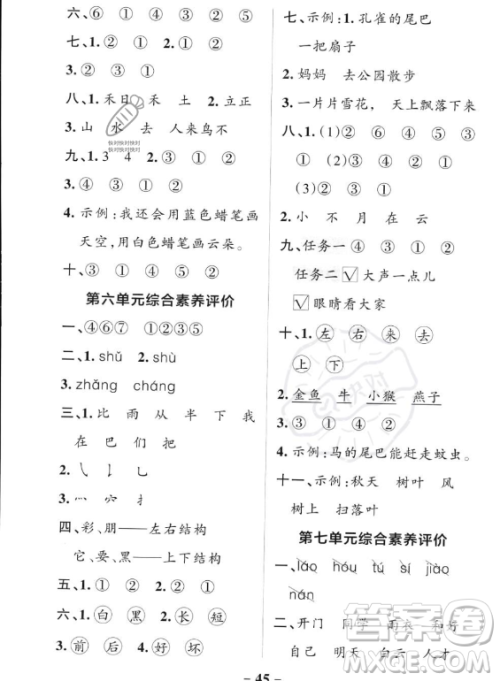 六、⑥ ① ④ ⑤ ② ③
七、1. ② ① ③ 2. ③ ① ②
3. ② ③ ①
八、1. 禾日 禾 土 2. 立正
3. 山 水 去 人来鸟不
九、1. 3 4 2. ① ② ④ ③
3. ④ ② ③ ①
4. 示例:我还会用蓝色蜡笔画
天空,用白色蜡笔画云朵。
十、③ ① ④ ⑤ ②
第六单元综合素养评价
一、④⑥⑦ ①②③⑤
二、1. shū 2. shù
3. zhǎng cháng
三、1. 比 雨 从 半 下 我
在 巴 们 把
2. ㇃ 丨 亅
3. 一 宀 丿
四、彩、朋——左右结构
它、要、黑——上下结构
五、1. ① ② 2. ① ②
六、1. 白 黑 2. 长 短
3. 前 后 4. 好 坏
七、示例:1. 孔雀的尾巴
一把扇子
2. 妈妈 去公园散步
3. 一片片雪花, 天上飘落下来
八、1. (1)② ⑥ ④ ⑤
(2)③ ① 2. (1)④ ③
(2)① ②
3. (1)② ①
4. 小 不 月 在 云
九、任务一 ④ ③ ② ①
任务二 ☑ 大声一点儿
☑ 眼睛看大家
十、1. 左 右 来 去
上 下
2. 金鱼 牛 小猴 燕子
3. ③ ① ④ ②
4. 示例:马的尾巴能赶走蚊虫。
十一、示例:秋天 树叶 风
树上 扫落叶
第七单元综合素养评价
一、láo hóu tú sí jiào
nán
二、开门 同学 雨衣 和好
自己 明天 白云 人才
– 45 –